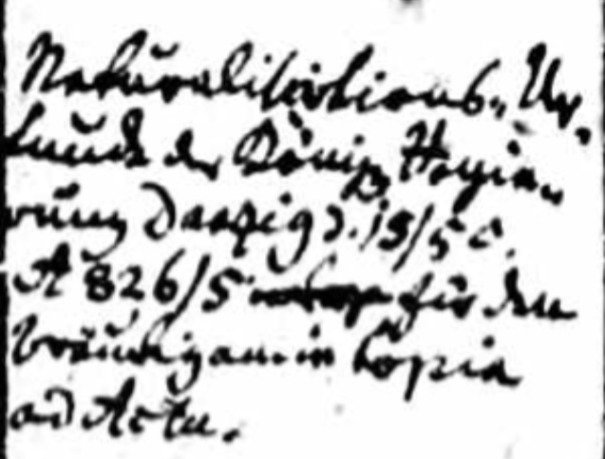 Naturalisations-Ur-
kunde der Königl. Regie-
rung Danzig d. 13/5 c.
A 826/5 für den
Bräutigam in Copia
ad Acta.